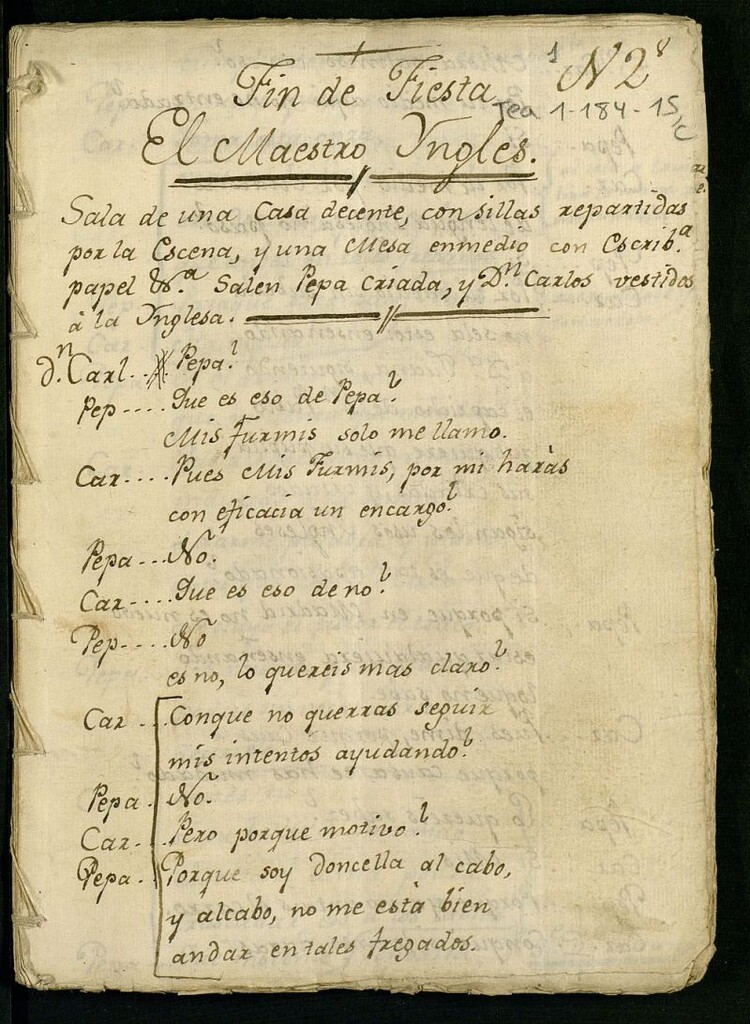 1 N 2 8
Fin de Fiesta
Tea 1-184-15, C
El Maestro Yngles.
Sala de una Casa decente, con sillas repartidas
por la Escena, y una Mesa enmedio con Escrib.ª
papel &.ª Salen Pepa Criada, y D.n Carlos vestidos
à la Ynglesa.
d.n Carl... Pepa?
Pep.... Que es eso de Pepa?
Mis Furmis solo me llamo.
Car.... Pues Mis Furmis, por mi haràs
con eficacia un encargo?
Pepa... No.
Car.... Que es eso de no?
Pep.... No
es no, lo quereis mas claro?
Car... Conque no querras seguir
mis intentos ayudando?
Pepa. No.
Car.. Pero porque motivo?
Pepa. Porque soy doncella al cabo,
y alcabo, no me està bien
andar en tales fregados.